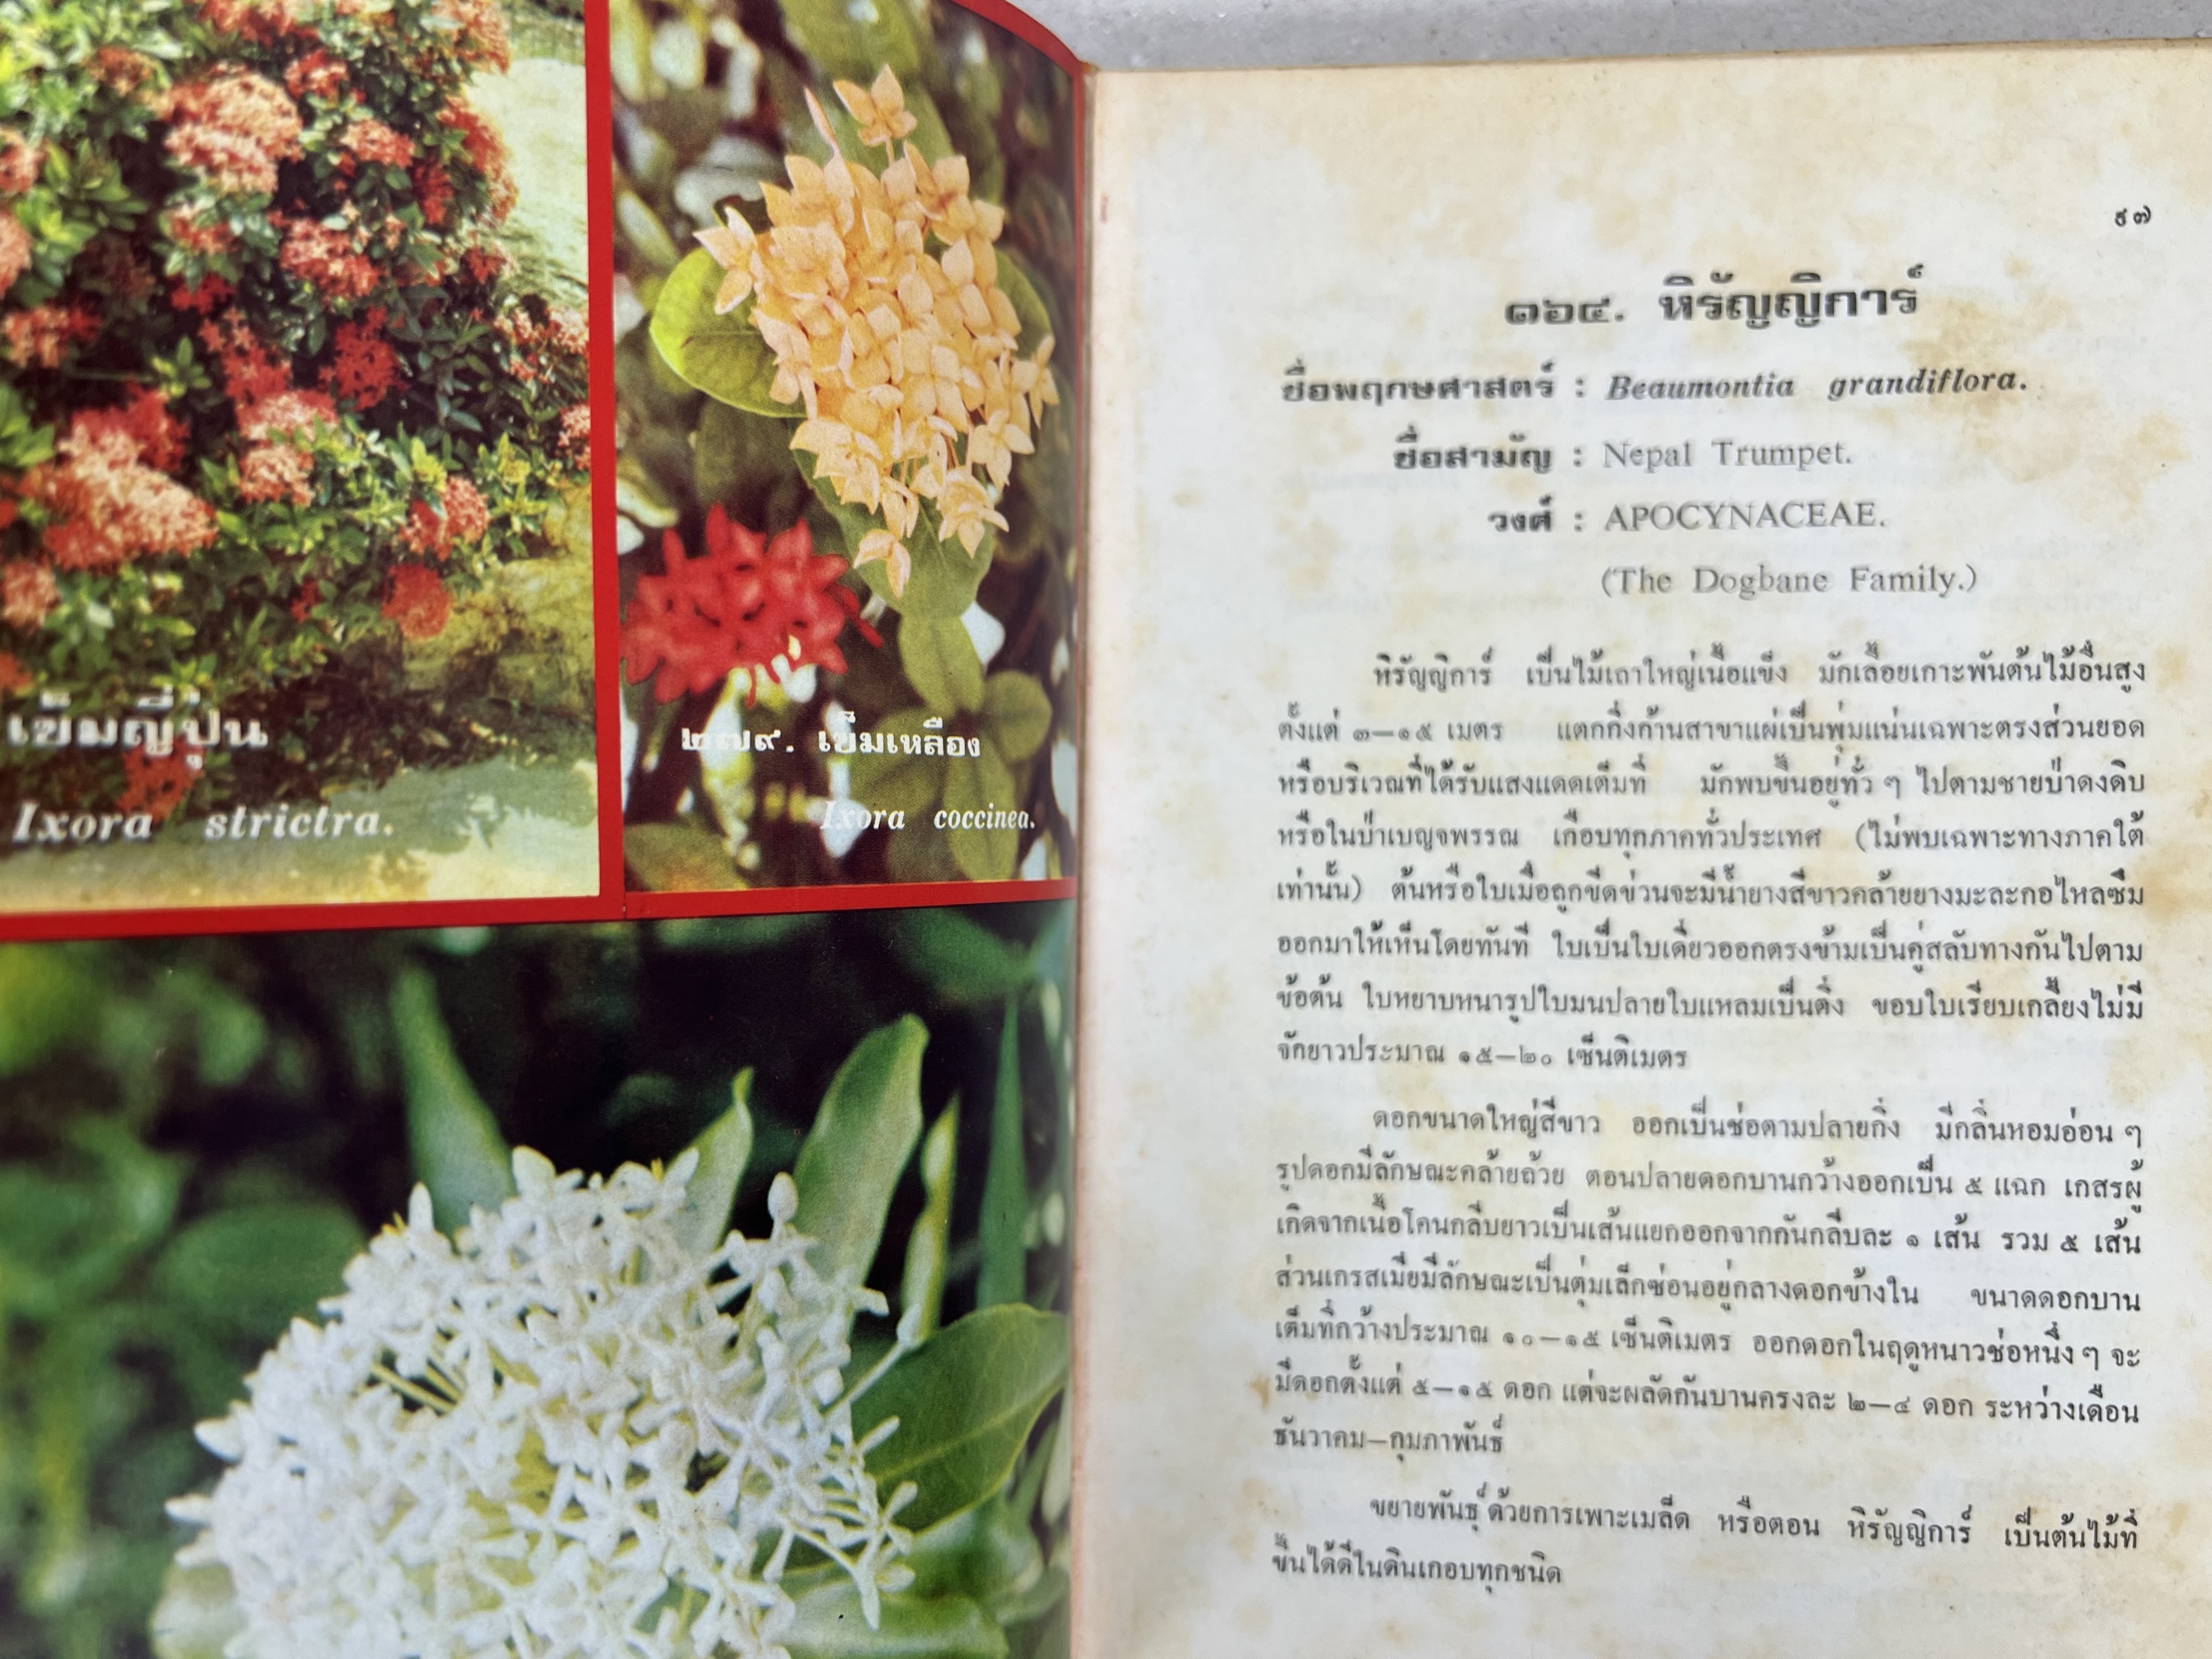 เข็มญี่ปุ่น
Ixora strictra.
๒๗๙. เข็มเหลือง
Ixora coccinea.
๙๗
๑๖๔. หิรัญญิการ์
ชื่อพฤกษศาสตร์ : Beaumontia grandiflora.
ชื่อสามัญ : Nepal Trumpet.
วงศ์ : APOCYNACEAE.
(The Dogbane Family.)
หิรัญญิการ์ เป็นไม้เถาใหญ่เนื้อแข็ง มักเลื้อยเกาะพันต้นไม้อื่นสูง
ตั้งแต่ ๓–๑๕ เมตร แตกกิ่งก้านสาขาแผ่เป็นพุ่มแน่นเฉพาะตรงส่วนยอด
หรือบริเวณที่ได้รับแสงแดดเต็มที่ มักพบขึ้นอยู่ทั่ว ๆ ไปตามชายป่าดงดิบ
หรือในป่าเบญจพรรณ เกือบทุกภาคทั่วประเทศ (ไม่พบเฉพาะทางภาคใต้
เท่านั้น) ต้นหรือใบเมื่อถูกขีดข่วนจะมีน้ำยางสีขาวคล้ายยางมะละกอไหลซึม
ออกมาให้เห็นโดยทันที ใบเป็นใบเดี่ยวออกตรงข้ามเป็นคู่สลับทางกันไปตาม
ข้อต้น ใบหยาบหนารูปใบมนปลายใบแหลมเป็นติ่ง ขอบใบเรียบเกลี้ยงไม่มี
จักยาวประมาณ ๑๕–๒๐ เซ็นติเมตร
ดอกขนาดใหญ่สีขาว ออกเป็นช่อตามปลายกิ่ง มีกลิ่นหอมอ่อน ๆ
รูปดอกมีลักษณะคล้ายถ้วย ตอนปลายดอกบานกว้างออกเป็น ๕ แฉก เกสรผู้
เกิดจากเนื้อโคนกลีบยาวเป็นเส้นแยกออกจากกันกลีบละ ๑ เส้น รวม ๕ เส้น
ส่วนเกรสเมียมีลักษณะเป็นตุ่มเล็กซ่อนอยู่กลางดอกข้างใน ขนาดดอกบาน
เต็มที่กว้างประมาณ ๑๐–๑๕ เซ็นติเมตร ออกดอกในฤดูหนาวช่อหนึ่ง ๆ จะ
มีดอกตั้งแต่ ๕–๑๕ ดอก แต่จะผลัดกันบานครงละ ๒–๔ ดอก ระหว่างเดือน
ธันวาคม–กุมภาพันธ์
ขยายพันธุ์ ด้วยการเพาะเมล็ด หรือตอน หิรัญญิการ์ เป็นต้นไม้ที่
ขึ้นได้ดีในดินเกอบทุกชนิด